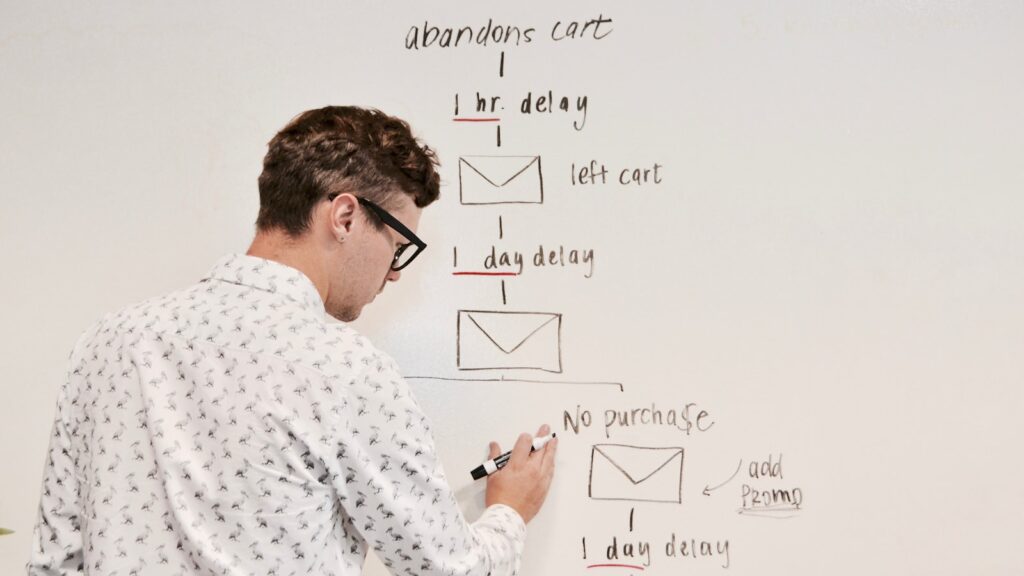 abandons cart
1 hr. delay
left cart
1 day delay
No purchase
add
PROMO
1 day delay